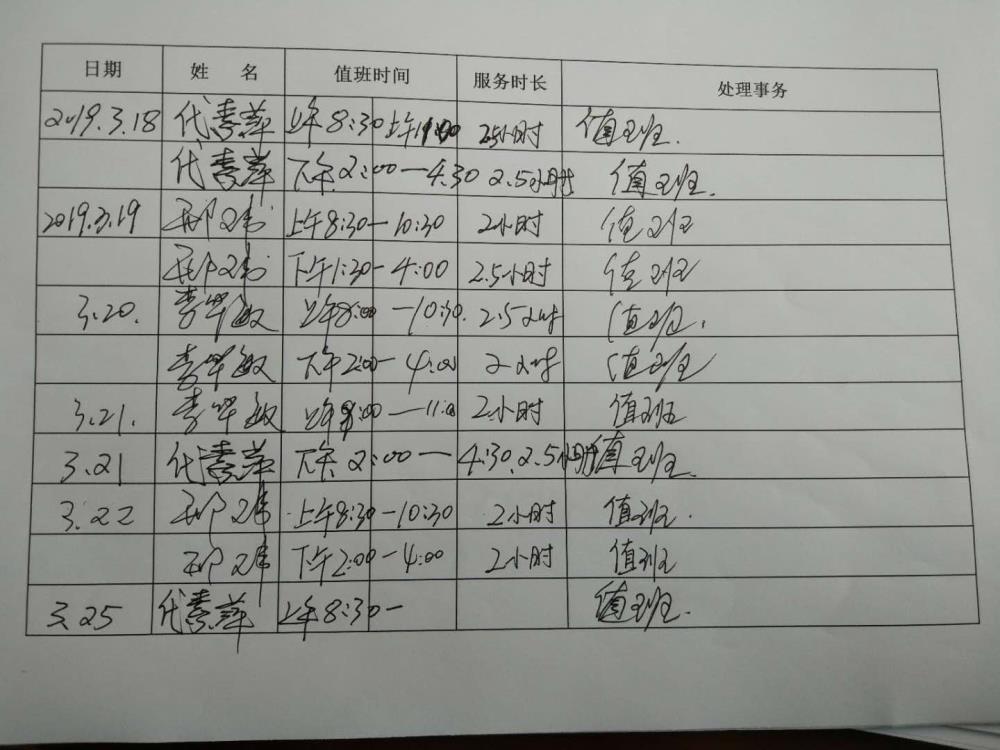 日期 姓 名 值班时间 服务时长 处理事务
2019.3.18 代素萍 上午8:30 上午11:00 2.5小时 值班.
代素萍 下午.2:00—4:30 2.5小时 值班.
2019.3.19 上午8:30—10:30 2小时 值班
下午1:30—4:00 2.5小时 值班
3.20. 李华敏 上午8:00—10:30. 2.5小时 值班.
李华敏 下午2:00—4:00 2小时 值班
3.21. 李华敏 上午9:00—11:00 2小时 值班
3.21 代素萍 下午.2:00—4:30.2.5小时 值班.
3.22 上午8:30—10:30 2小时 值班.
下午2:00—4:00 2小时 值班
3.25 代素萍 上午8:30— 值班.